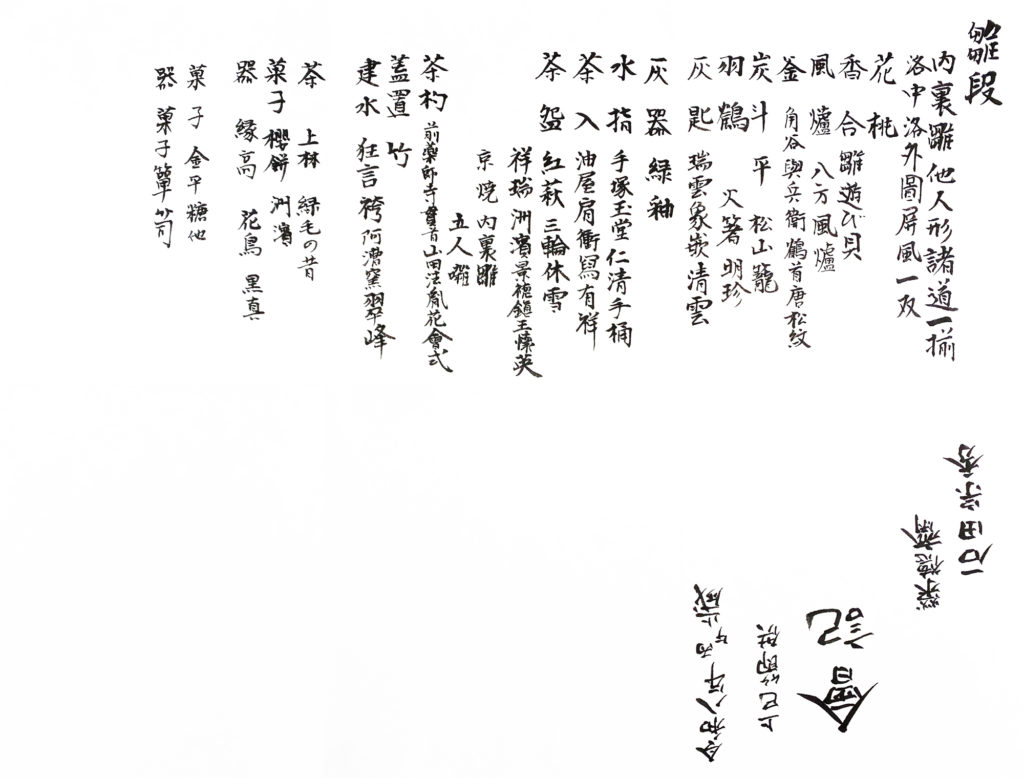 雛段
内裏雛 他人形諸道一揃
洛中洛外圖屏風一双
花 桃
香合 雛遊び貝
風爐 八方風爐
釜 角谷與兵衛 鶴首唐松紋
炭斗 平 松山籠
羽 鶴 火箸 明珍
灰匙 瑞雲象嵌 清雲
灰器 緑釉
水指 手塚玉堂 仁清手桶
茶入 油屋肩衝写 有祥
茶盌 紅萩 三輪休雪
祥瑞 洲濱 景徳鎮 王愫英
京焼 内裏雛
五人囃
茶杓 前薬師寺管首山田法胤 花會式
蓋置 竹
建水 狂言袴 阿漕窯 翠峰
茶 上林 緑毛の昔
菓子 櫻餅 洲濱
器 縁高 花鳥 黒真
菓子 金平糖他
器 菓子箪笥
會記
上巳節供
令和八年丙午歳
榮徳齋
石田宗秀